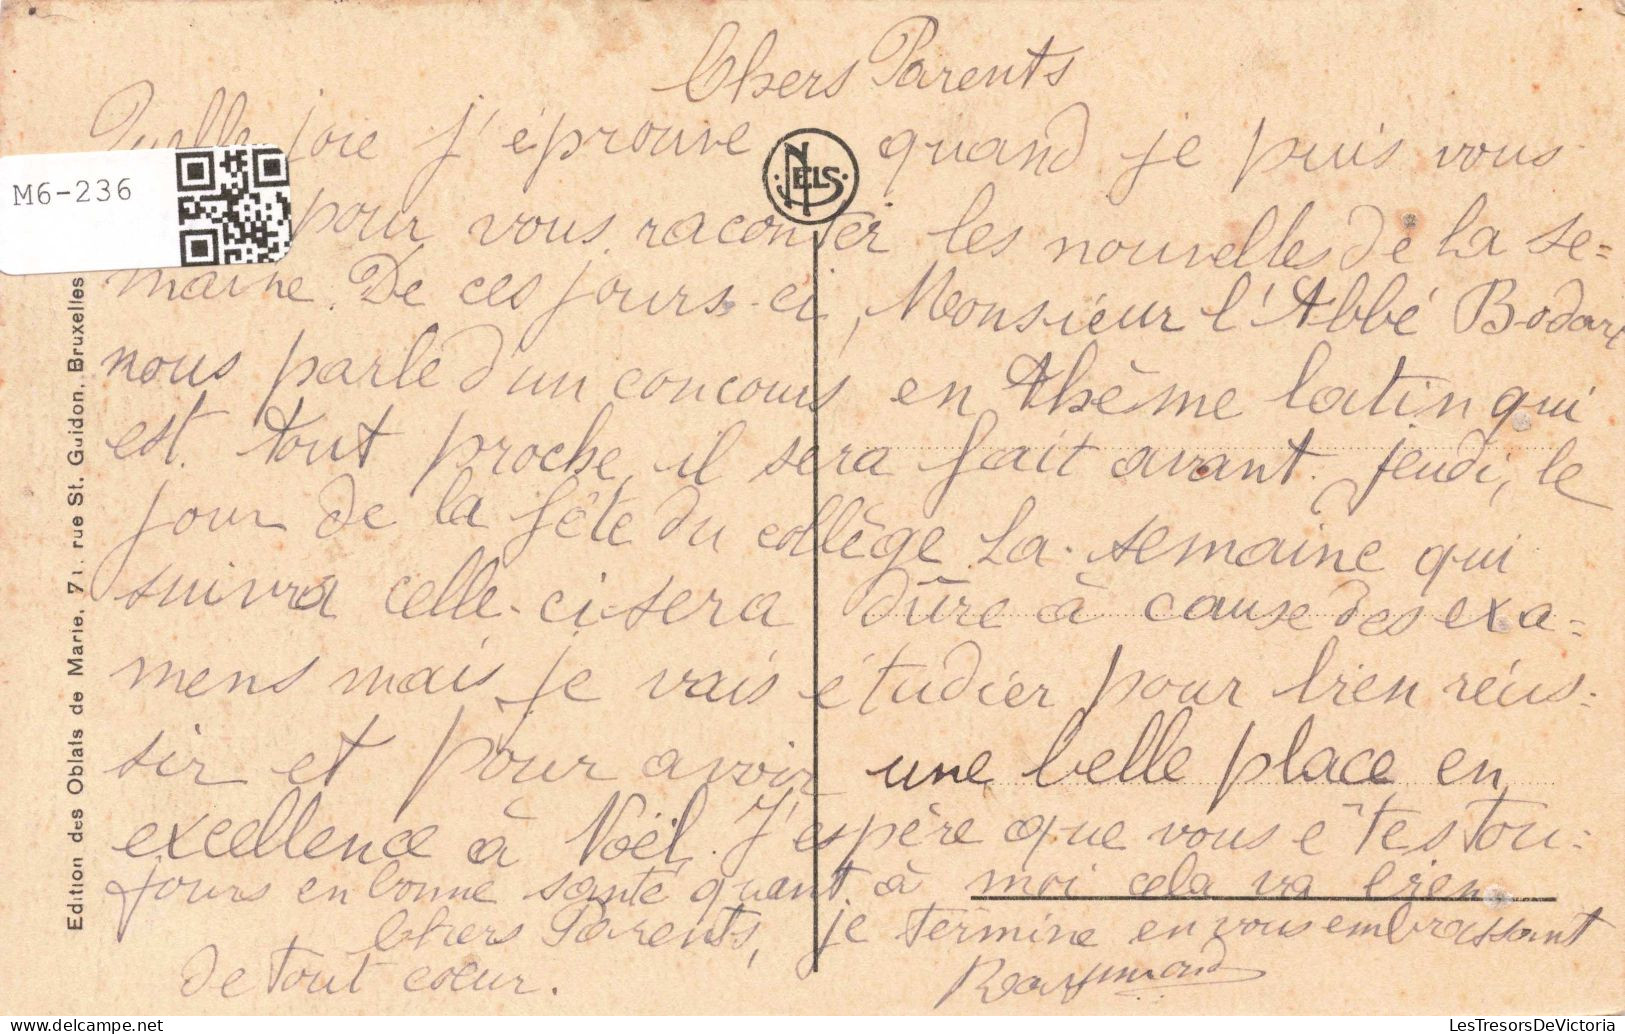 Chers Parents
Quelle joie j'éprouve quand je puis vous
pour vous raconter les nouvelles de la se=
maine. De ces jours-ci, Monsieur l'Abbé Bodart
nous parle d'un concours en thème latin qui
est tout proche, il sera fait avant jeudi, le
jour de la fête du collège. La semaine qui
suivra celle-ci sera dûre à cause des exa=
mens mais je vais étudier pour bien réus=
sir et pour avoir une belle place en
excellence à Noël. J'espère que vous êtes tou=
jours en bonne santé quant à moi cela va bien
Chers Parents, je termine en vous embrassant
de tout coeur. Raymond
NELS
M6-236
Edition des Oblats de Marie. 71. rue St. Guidon. Bruxelles
LesTresorsDeVictoria